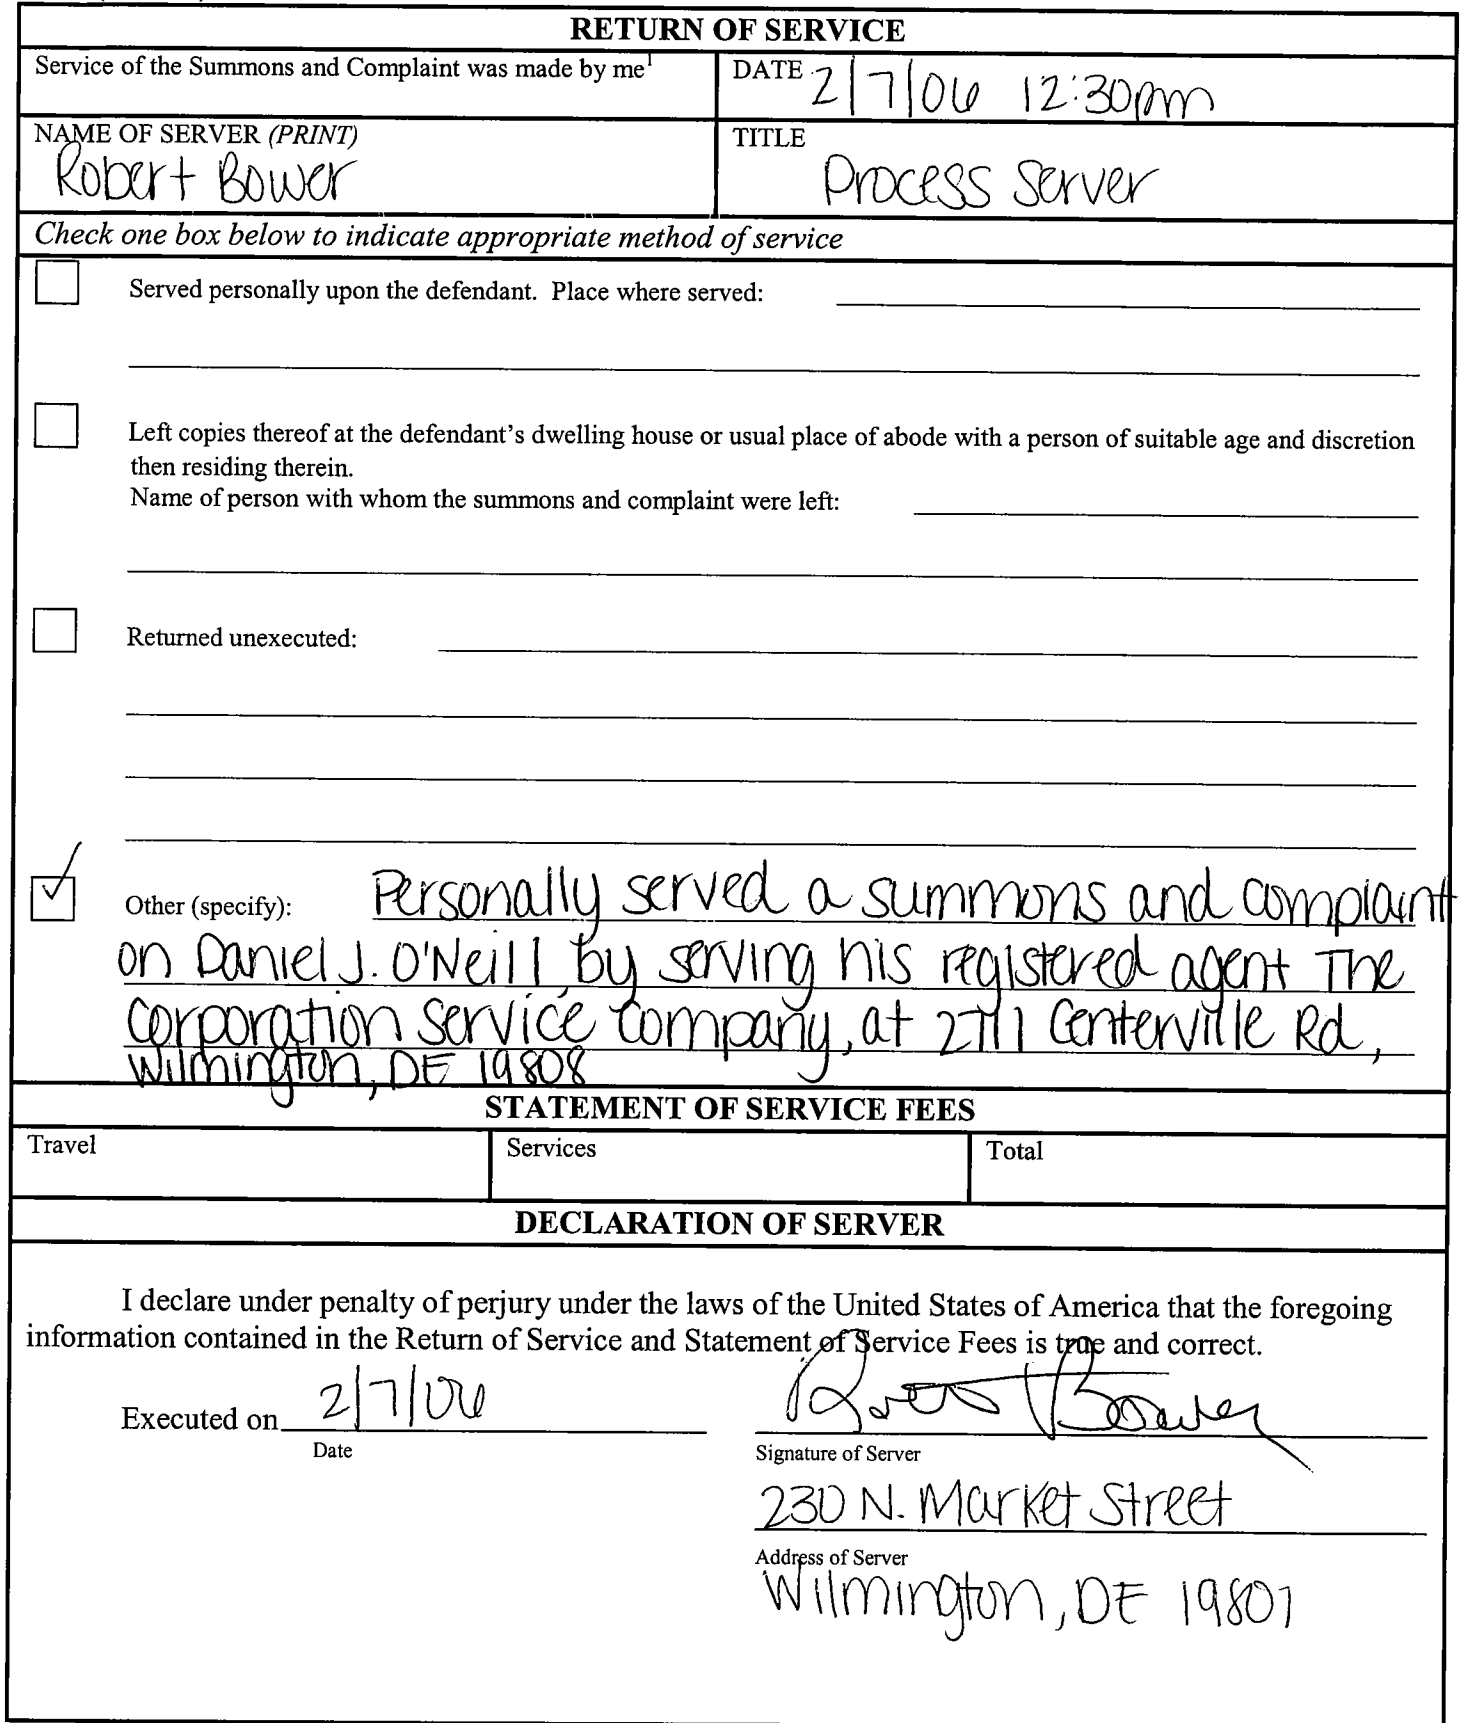 RETURN OF SERVICE
Service of the Summons and Complaint was made by me¹
DATE 2/7/06 12:30pm
NAME OF SERVER (PRINT)
Robert Bower
TITLE
Process Server
Check one box below to indicate appropriate method of service
Served personally upon the defendant. Place where served:
Left copies thereof at the defendant's dwelling house or usual place of abode with a person of suitable age and discretion
then residing therein.
Name of person with whom the summons and complaint were left:
Returned unexecuted:
Other (specify): Personally served a summons and complaint
on Daniel J. O'Neill by serving his registered agent The
Corporation Service Company, at 2711 Centerville Rd,
Wilmington, DE 19808
STATEMENT OF SERVICE FEES
Travel Services Total
DECLARATION OF SERVER
I declare under penalty of perjury under the laws of the United States of America that the foregoing
information contained in the Return of Service and Statement of Service Fees is true and correct.
Executed on 2/7/06 Robert Bower
Date Signature of Server
230 N. Market Street
Address of Server
Wilmington, DE 19801